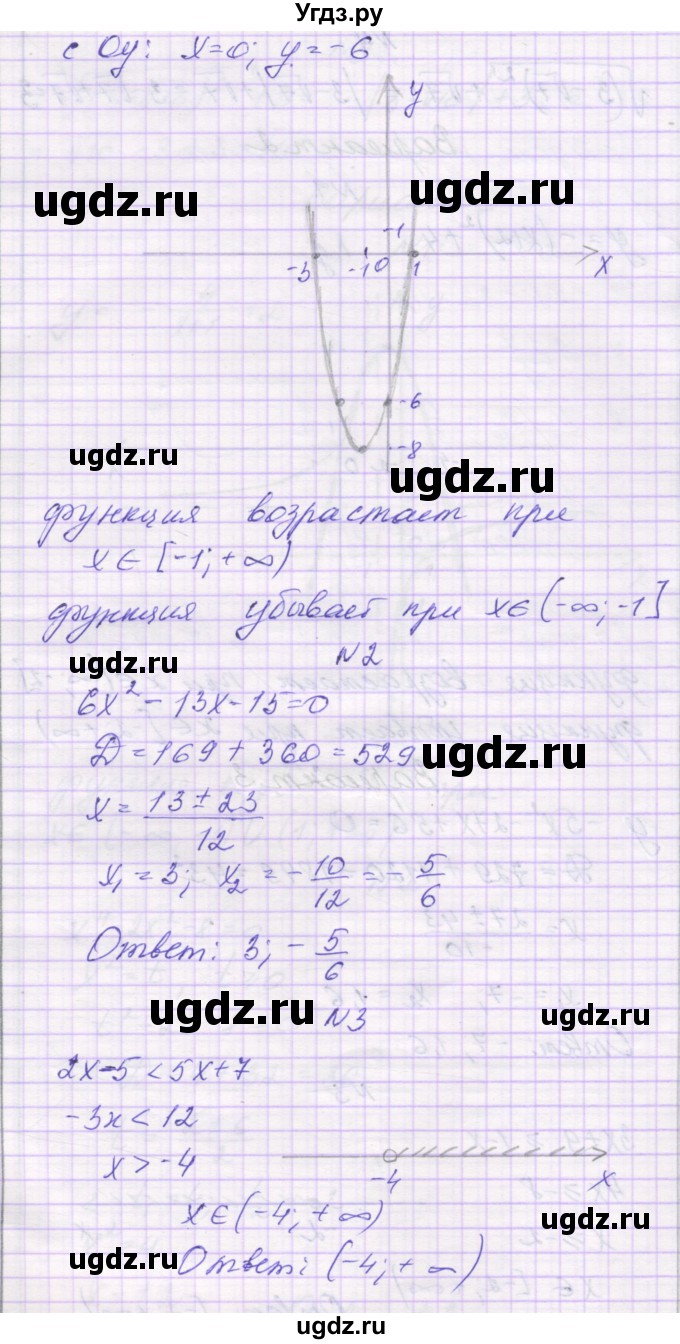 Угдз.ру
с Oy: x=0; y=-6
y
ugdz.ru ugdz.ru
-1
-3 -1 0 1 x
-6
-8
ugdz.ru
ugdz.ru
функция возрастает при
x∈[-1;+∞)
функция убывает при x∈(-∞;-1]
N2
ugdz.ru
6x²-13x-15=0
D=169+360=529
ugdz.ru
x=(13±23)/12
x₁=3; x₂=-10/12=-5/6
Ответ: 3; -5/6
ugdz.ru
N3
ugdz.ru
2x-5<5x+7
-3x<12
x>-4
-4 x
x∈(-4;+∞)
ugdz.ru
Ответ: (-4;+∞)
ugdz.ru
ugdz.ru